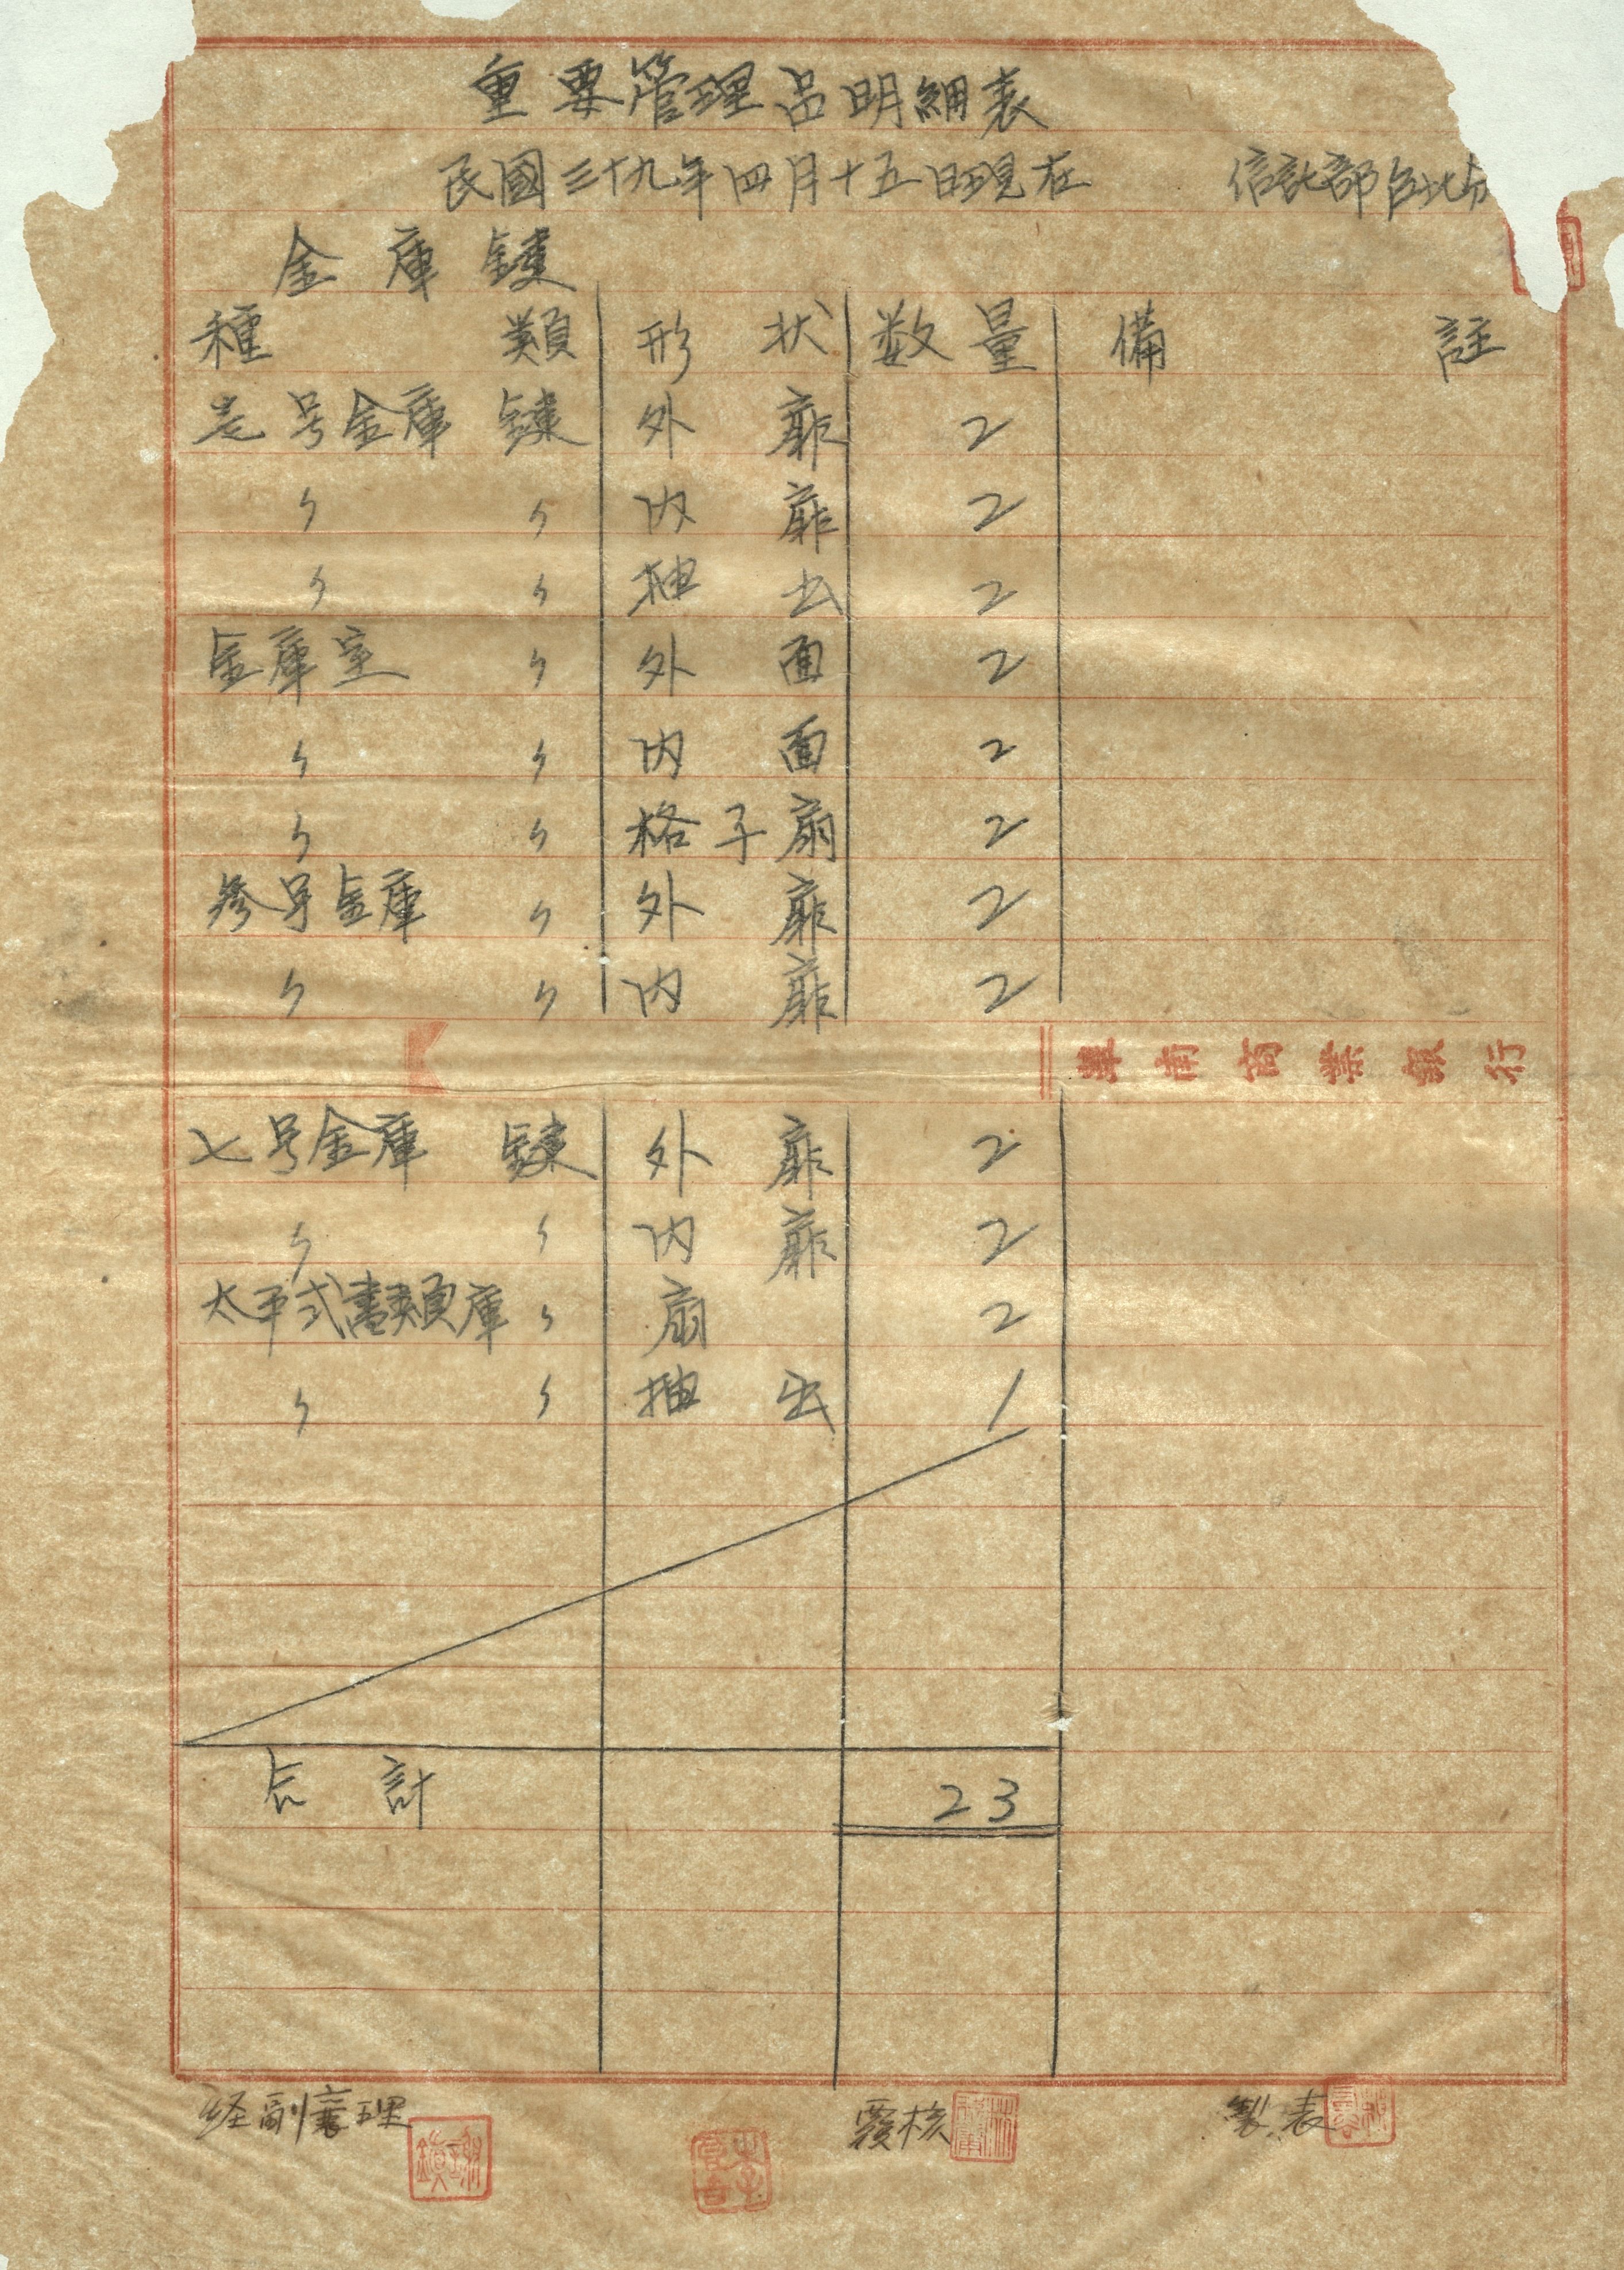 重要管理品明細表
民國三十九年四月十五日現在 信託部台北分
金庫鍵
種類 形状 数量 備註
壱号金庫鍵 外扉 2
〃 〃 内扉 2
〃 〃 抽出 2
金庫室 〃 外面 2
〃 〃 内面 2
〃 〃 格子扇 2
参号金庫 〃 外扉 2
〃 〃 内扉 2
華南商業銀行
七号金庫鍵 外扉 2
〃 〃 内扉 2
太平式書類庫 〃 扇 2
〃 〃 抽出 1
合計 23
経副襄理 覆核 製表